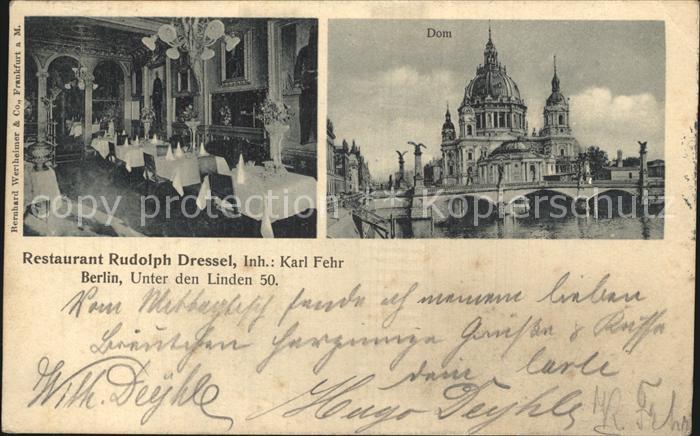 Bernhard Wertheimer & Co., Frankfurt a M.
Dom
copy protection Kopierschutz
Restaurant Rudolph Dressel, Inh.: Karl Fehr
Berlin, Unter den Linden 50.
Vom Mittagtisch sende ich meinem lieben
Bräutchen herzinnige Grüße & Küsse
dein
Wilh. Deyhle
Hugo Deyhle